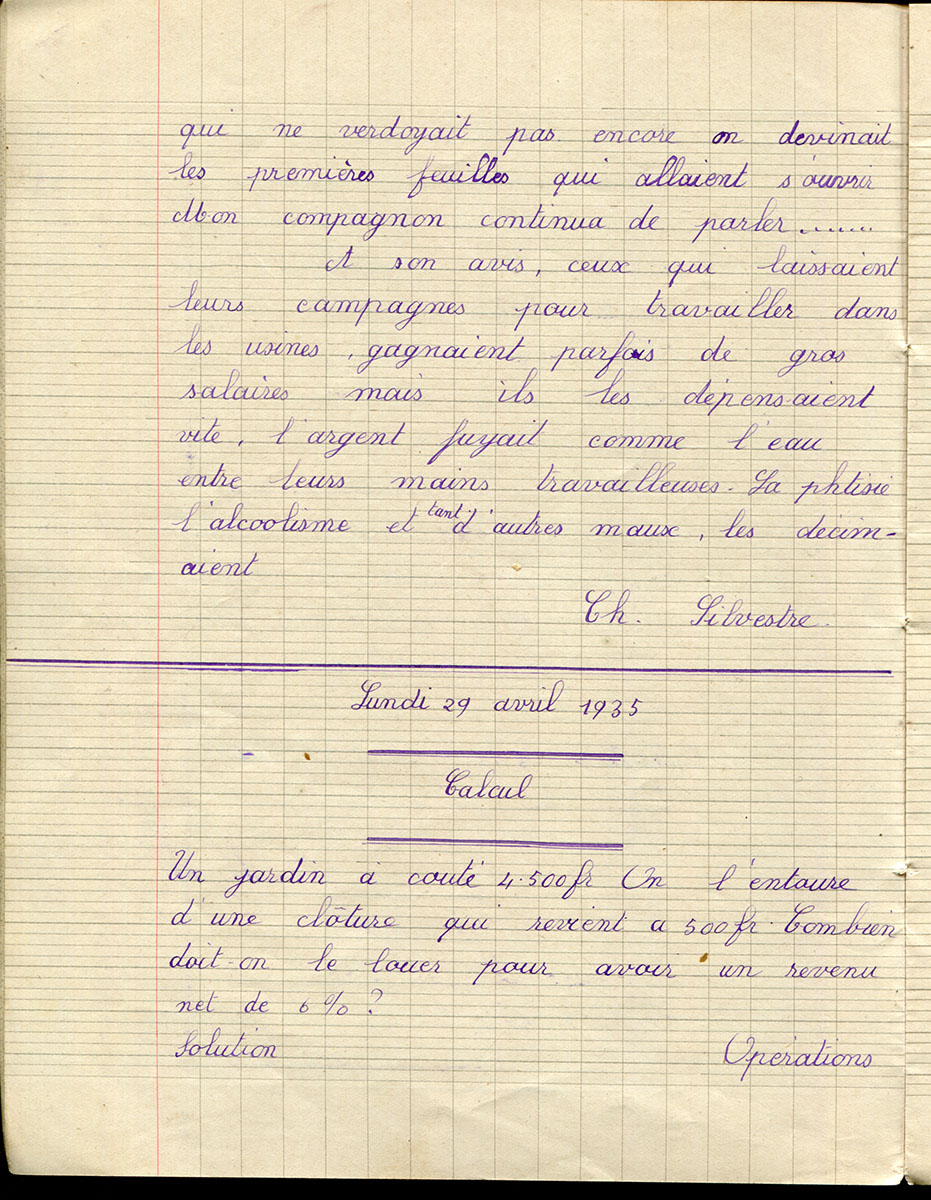 qui ne verdoyait pas encore on devinait
les premières feuilles qui allaient s'ouvrir
Mon compagnon continua de parler.......
A son avis, ceux qui laissaient
leurs campagnes pour travailler dans
les usines, gagnaient parfois de gros
salaires mais ils les dépensaient
vite, l'argent fuyait comme l'eau
entre leurs mains travailleuses. La phtisie
l'alcoolisme et tant d'autres maux, les décim-
aient
Ch. Silvestre.
Lundi 29 avril 1935
Calcul
Un jardin a couté 4.500fr On l'entoure
d'une clôture qui revient a 500fr. Combien
doit-on le louer pour avoir un revenu
net de 6%?
Solution Opérations